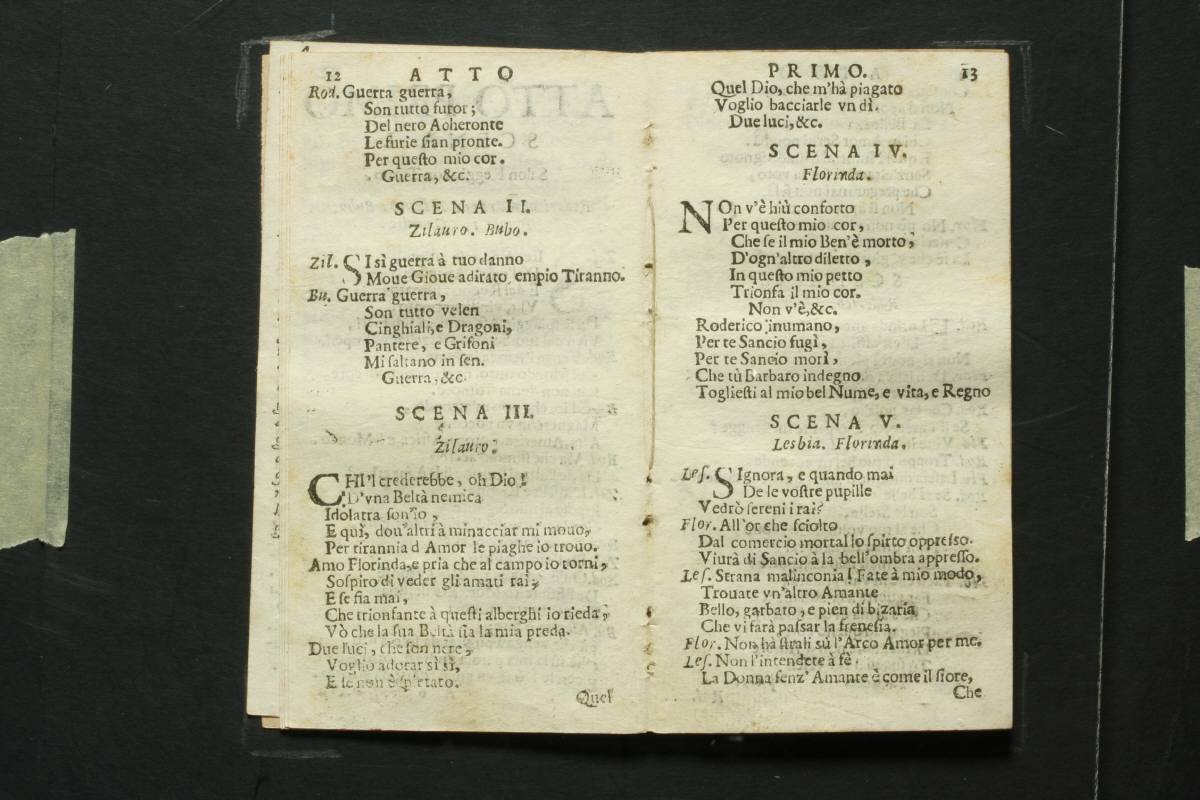 12 ATTO
Rod. Guerra guerra,
Son tutto furor;
Del nero Acheronte
Le furie sian pronte.
Per questo mio cor.
Guerra, &c.
SCENA II.
Zilauro. Bubo.
Zil. SI sì guerra à tuo danno
Moue Gioue adirato, empio Tiranno.
Bu. Guerra guerra,
Son tutto velen
Cinghiali, e Dragoni,
Pantere, e Grifoni
Mi saltano in sen.
Guerra, &c.
SCENA III.
Zilauro.
CHI'l crederebbe, oh Dio!
D'vna Beltà nemica
Idolatra son'io,
E quì, dou'altri à minacciar mi mouo,
Per tirannia d'Amor le piaghe io trouo.
Amo Florinda, e pria che al campo io torni,
Sospiro di veder gli amati rai,
E se fia mai,
Che trionfante à questi alberghi io rieda,
Vò che la sua Beltà sia la mia preda.
Due luci, che son nere,
Voglio adorar sì sì,
E se non è spietato.
Quel
PRIMO. 13
Quel Dio, che m'hà piagato
Voglio bacciarle vn dì.
Due luci, &c.
SCENA IV.
Florinda.
NOn v'è hiù conforto
Per questo mio cor,
Che se il mio Ben'è morto,
D'ogn'altro diletto,
In questo mio petto
Trionfa il mio cor.
Non v'è, &c.
Roderico inumano,
Per te Sancio fugì,
Per te Sancio morì,
Che tù Barbaro indegno
Togliesti al mio bel Nume, e vita, e Regno
SCENA V.
Lesbia. Florinda.
Les. SIgnora, e quando mai
De le vostre pupille
Vedrò sereni i rai?
Flor. All'or che sciolto
Dal comercio mortal lo spirto oppresso.
Viurà di Sancio à la bell'ombra appresso.
Les. Strana malinconia! Fate à mio modo,
Trouate vn'altro Amante
Bello, garbato, e pien di bizaria
Che vi farà passar la frenesia.
Flor. Non hà strali sù l'Arco Amor per me.
Les. Non l'intendete à fè.
La Donna senz'Amante è come il fiore,
Che